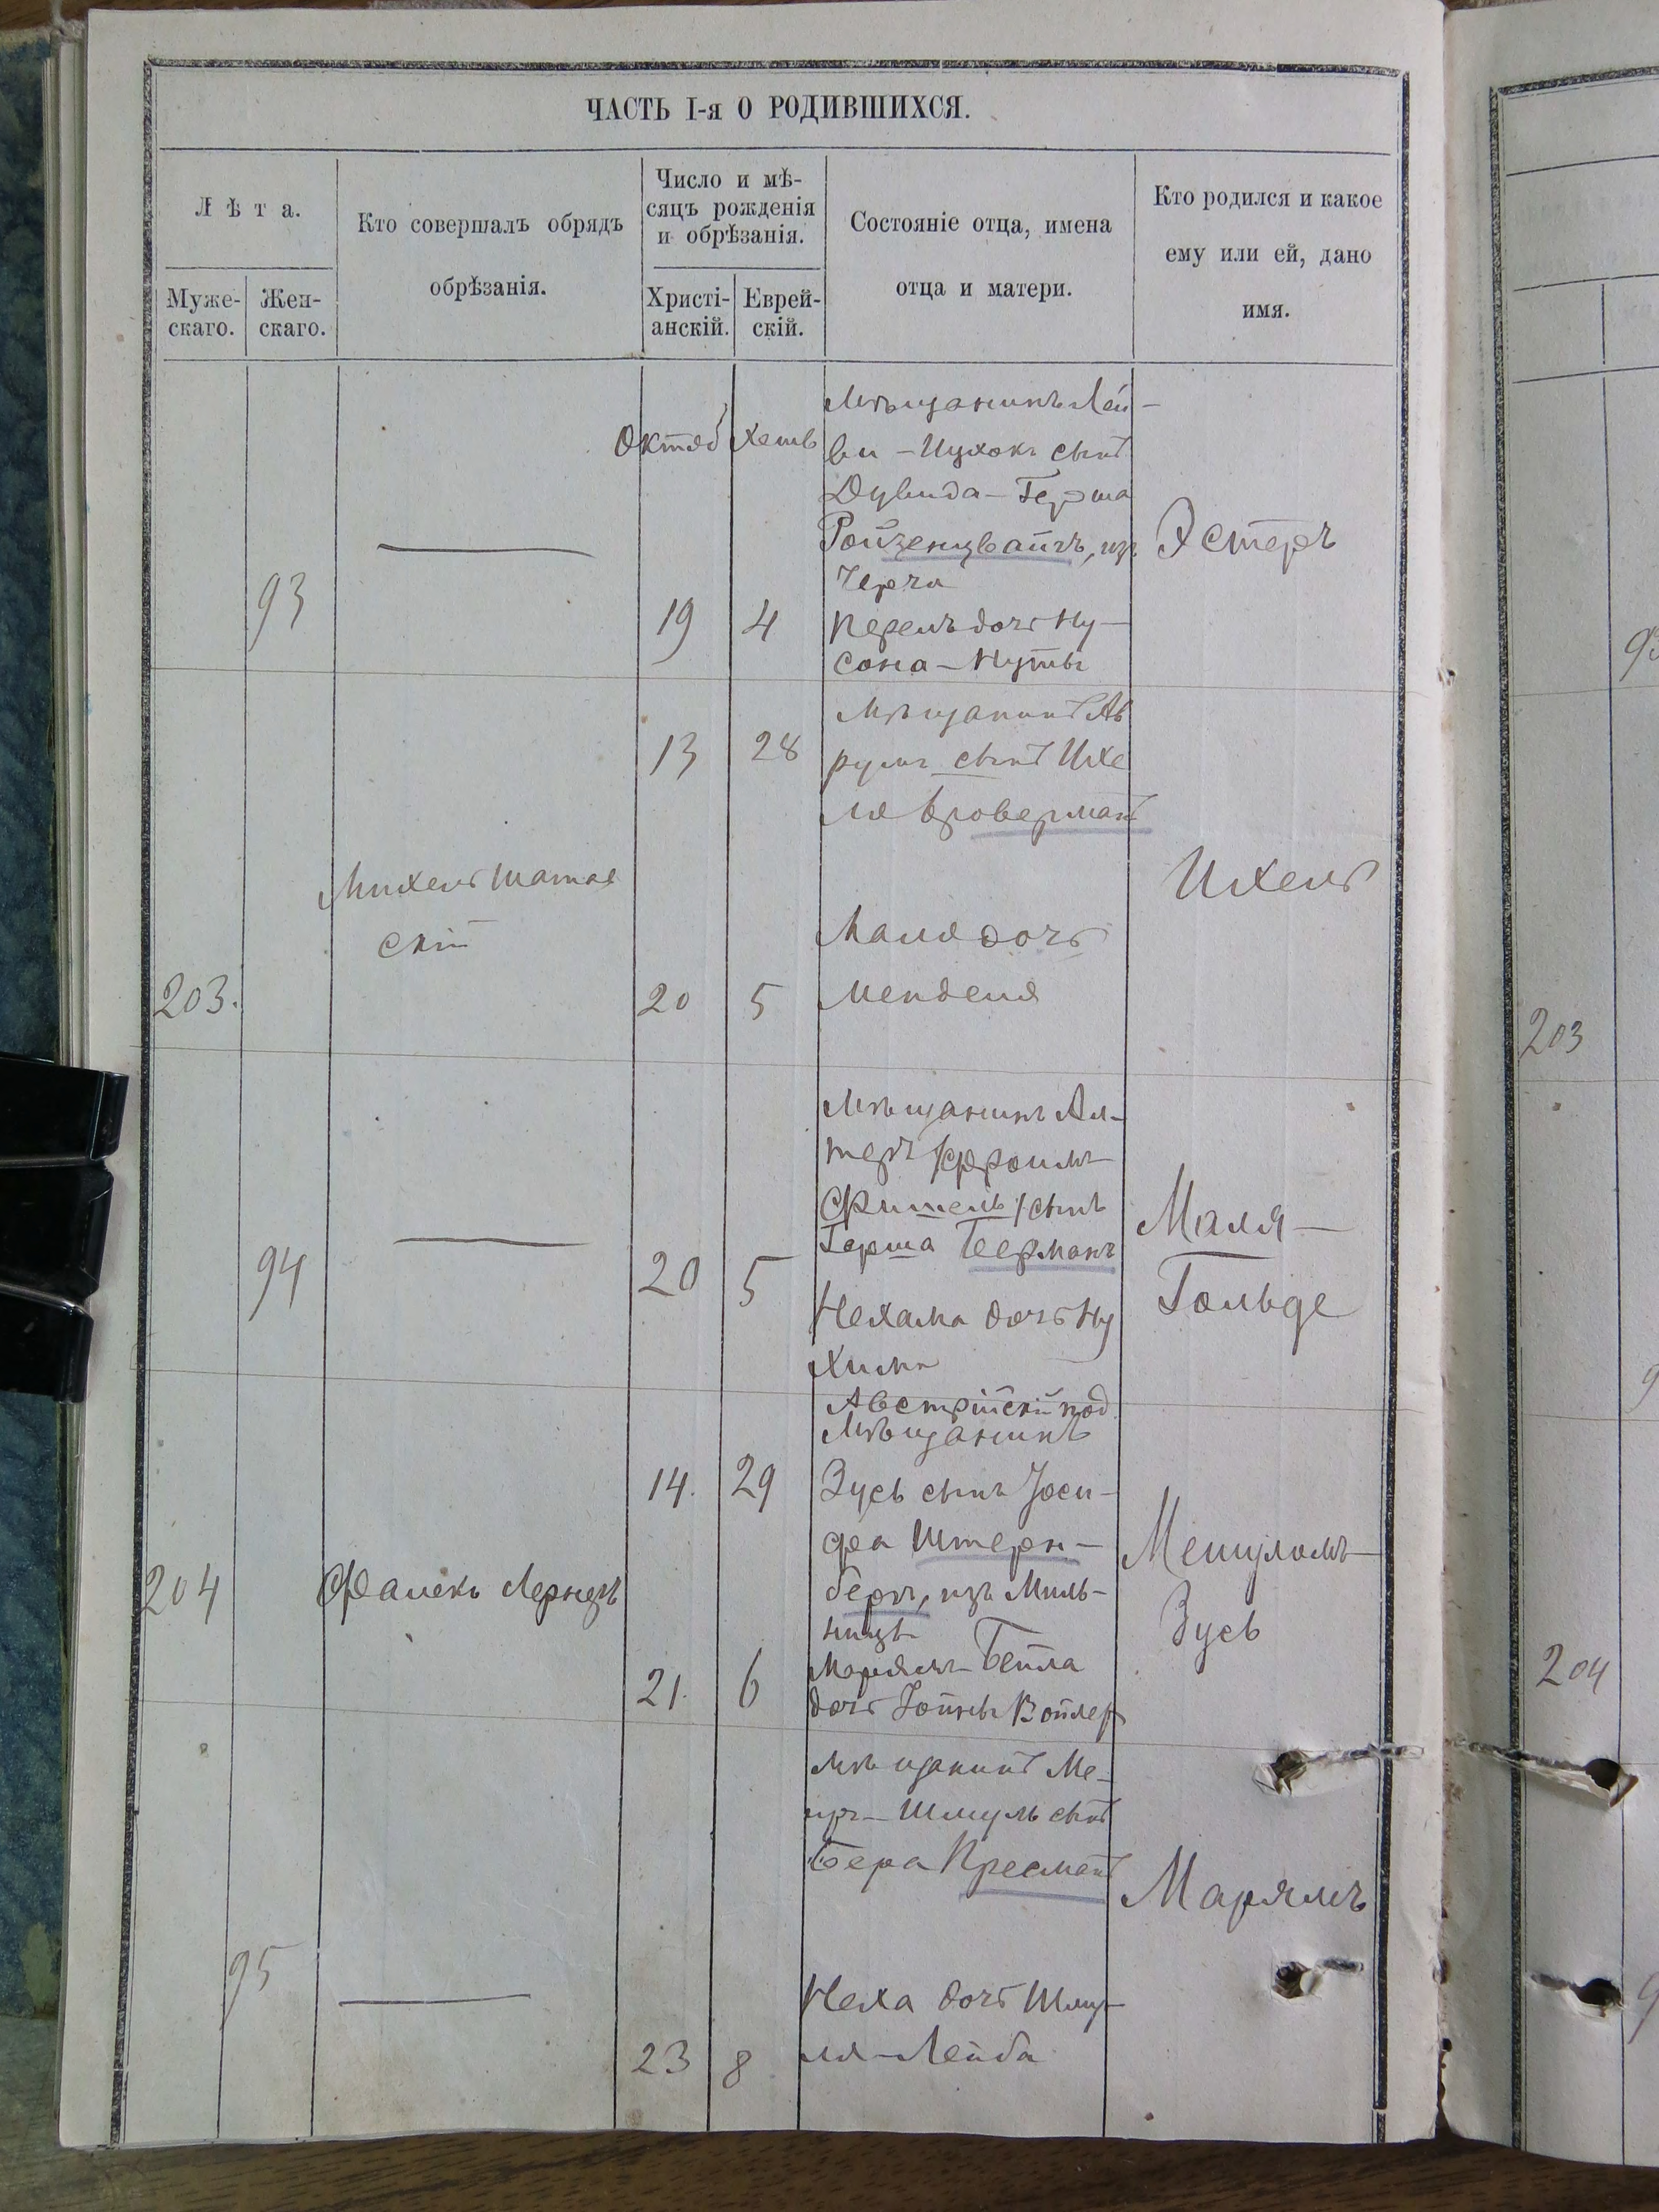 ЧАСТЬ I-я О РОДИВШИХСЯ.
Лѣта.
Муже-
скаго.
Жен-
скаго.
Кто совершалъ обрядъ
обрѣзанія.
Число и мѣ-
сяцъ рожденія
и обрѣзанія.
Христі-
анскій.
Еврей-
скій.
Состояніе отца, имена
отца и матери.
Кто родился и какое
ему или ей, дано
имя.
93
Октяб
19
Хешв
4
Мѣщанинъ Лей-
ви-Ицхокъ сынъ
Дувида-Герша
Ройзенцвайгъ, изъ
Перелъ дочь Ну-
сона-Нуты
Эстеръ
203.
Михель Шатан
скій
13
20
28
5
Мѣщанинъ Ав
румъ сынъ Ихе
ля Броверманъ
Маля дочь
Менделя
Ихель
94
20
5
Мѣщанинъ Ал-
теръ /Фроимъ-
Фишель/ сынъ
Герша Берманъ
Нехама дочь Ну
хима
Маля-
Гольде
204
Фалекъ Лернеръ
14.
21.
29
6
Австрійскій под.
Мѣщанинъ
Зусь сынъ Іоси-
фа Штерн-
бергъ, изъ Миль-
ницъ
Марямъ-Бейла
дочь Іойны Войлер
Мешуломъ-
Зусь
95
23
8
Мѣщанинъ Ме-
иръ-Шмуль сынъ
Бера Кресманъ
Неха дочь Шму-
ля-Лейба
Марямъ
203
204